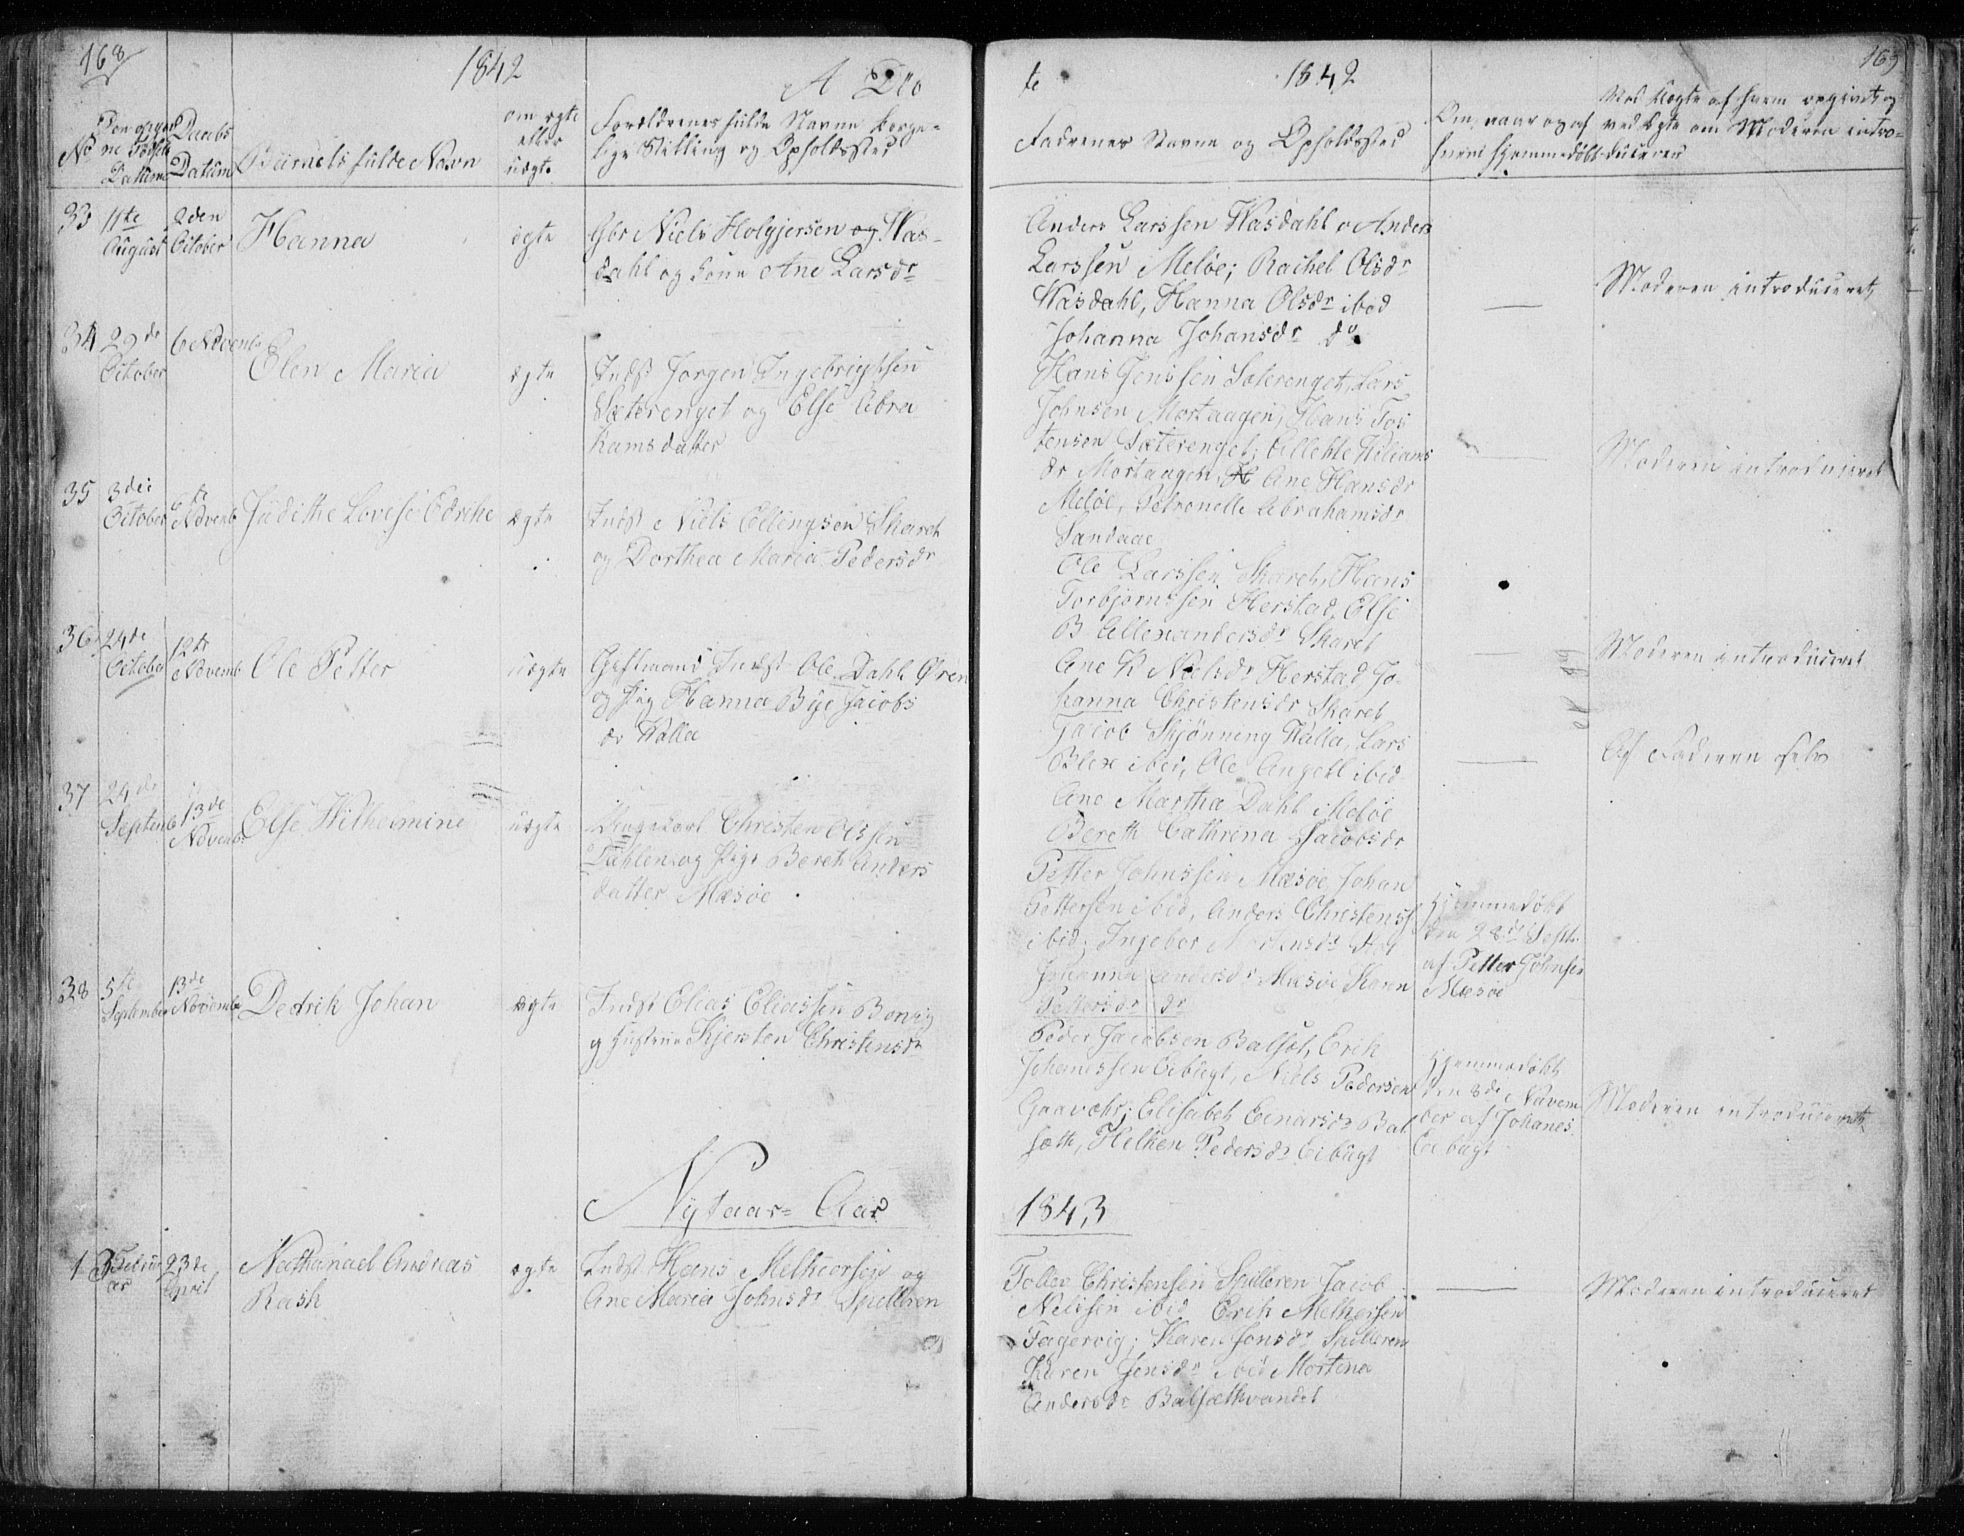 168
1842
A Dto
No
Daabs
Datum
Barnets fulde Navn
om ægte
eller
uægte
Forældrenes fulde Navne Borge-
lige Stilling og Opholdssted
33
11te
August
2den
October
Hanna
ægte
Gbr Niels Holgjersen og Has-
dahl og Kone Ane Larsdr
34
29de
October
6 Novemb
Elen Maria
ægte
Indst Jørgen Ingebrigtsen
Sæterenget og Else Abra
hamsdatter
35
3die
October
6te
Novemb
ægte
Indst Niels Skaret
og Dorthea Maria Pedersdr
36
24de
October
12te
Novemb
Ole Petter
uægte
Indst Ole Dahl Øren
og Pig Hanna Bye Jacobs
dr Halla
37
24de
Septemb
13de
Novemb
Else Wilhelmine
uægte
Ungekarl Christen Olsen
Dahlen og Pige Bereth Anders
datter Mæsøe
38
5te
September
13de
Novemb
Dedrik Johan
ægte
Indst Elias Eliassen
og Hustrue Kjersten Christensdr
Nytaar- Aar
1
Febru
ar
23de
April
Nathanael Andreas
Rask
ægte
Indst Hans Melkiorsen og
Ane Maria Johnsdr Spilleren
te
1842
169
Faderenes Navne og Opholdssted
Om, naar og af
hvem hjemmedøbt
ved Ægte om Moderen intro-
duceres
Anders Larssen Hasdahl o Anders
Larssen Meløe; Rachel Olsdr
Hasdahl, Hanna Olsdr ibid
Johanna Johansdr do
Moderen introduceret
Hans Jenssen Sæterenget, Lars
Johnsen Mortaagen, Hans Tos
tensen Sæterenget;
dr Mortaagen, Ane Hansdr
Meløe, Petronelle Abrahamsdr
Sandaae
Moderen introduceret
Ole Larssen Skaret, Hans
Torbjørnssen Herstad, Else
B Allexandersdr Skaret
Ane K Nielsdr Herstad Jo-
hanna Christensdr Skaret
Moderen introduceret
Jacob Skjønning Halla, Lars
Blix ibid, Ole Angell ibid
Ane Martha Dahl Meløe
Bereth Cathrina Jacobsdr
Af Faderen selv
Petter Johnssen Mæsøe, Johan
Pettersen ibid, Anders Christenss
ibid; Ingebor
Johanna Andersdr Mæsøe Karen
Pettersdr do
Hjemmedøbt
den 28de Sept.
af Petter Johnsen
Mæsøe
Peder Jacobsen Balset, Erik
Johanessen Eibugt, Niels Pedersen
Elisabet Einarsdr Bal
sæth, Helken Pedersdr Eibugt
Hjemmedøbt
den 8de Novem
ber af Johanes
Eibugt
Moderen introduceret
1843
Toller Christensen Spilleren Jacob
Nilssen ibid Erik Melkersen
Fagervig; Karen Jonsdr Spilleren
Karen Jensdr ibid Mortena
Andersdr Balsæthvandet
Moderen introduceret